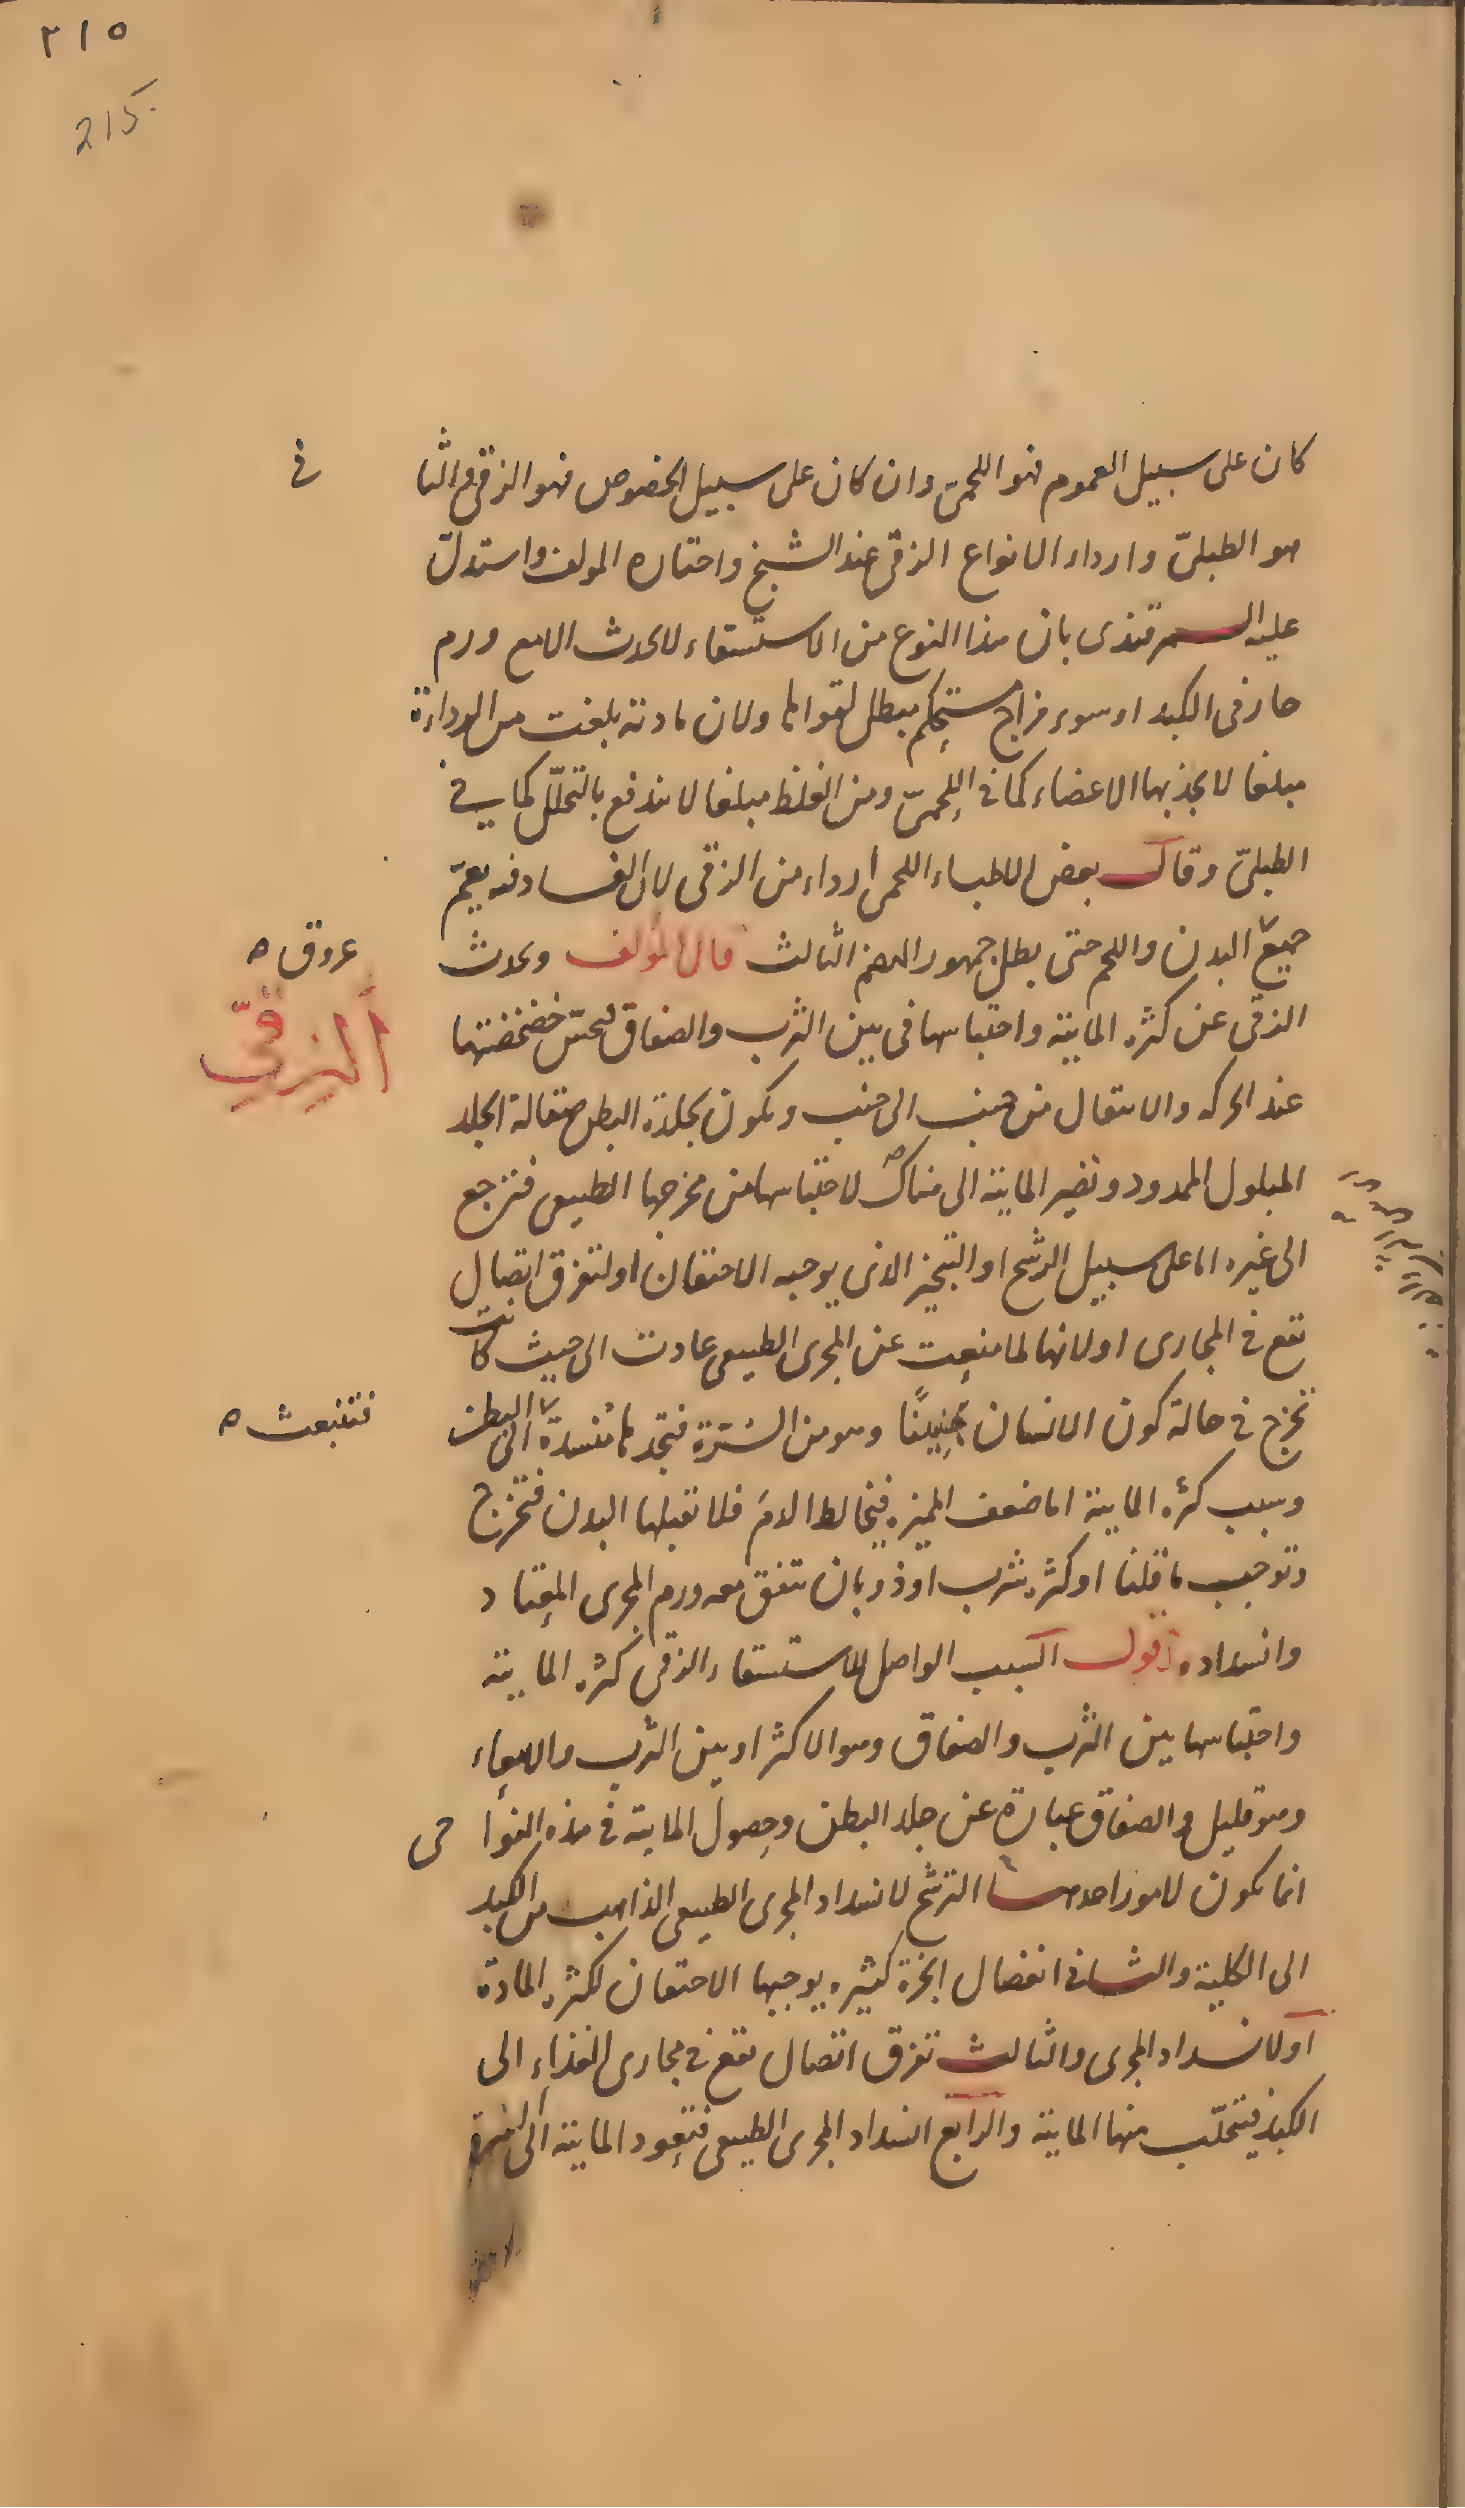 ٢١٥
215
كان على سبيل العموم فهو اللحمىّ وان كان على سبيل الخصوص فهو الزقى والثا
نى
هو الطبلىّ وارداء الانواع الزقى عند الشيخ واختاره المولف واستدلّ
عليه السمرقندى بان هذا النوع من الاستسقاء لا يحدث الا مع ورم
حار فى الكبد او سوء مزاج مستحكم مبطل لقواها ولان مادته بلغت من الرداءة
مبلغا لا يجذبها الاعضاء كما فى اللحمىّ ومن الغلظ مبلغا لا يندفع بالتحلّل كما فى
الطبلىّ وقال بعض الاطباء اللحمى ارداء من الزقى لان الفساد فيه يعمّ
جميع البدن واللحم حتى بطل جمهور الهضم الثالث قال المولف ويحدث
عروق ه
الزقى عن كثرة المايية واحتباسها فى بين الثرب والصفاق فيحسّ خضخضتها
الزقىّ
عند الحركه والانتقال من جنب الى جنب ويكون بجلدة البطن صقالة الجلد
المبلول الممدود وتصير المايية الى هناك لاحتباسها من مخرجها الطبيعى فترجع
الى غيره اما على سبيل الرشح او التبخير الذى يوجبه الاحتقان او لتفرق اتصال
تقع فى المجارى او لانها لما منعت عن المجرى الطبيعى عادت الى حيث كانت
تخرج فى حالة كون الانسان جنينًا وهو من السّرة فتجدها منسدة الى البطن
فتنبعث ه
وسبب كثرة المايية اما ضعف المميزه فيخالط الدم فلا تقبلها البدن فتخرج
وتوجب ما قلنا او كثرة شرب او ذوبان تتفق معه ورم المجرى المعتاد
وانسداده اقول السبب الواصل للاستسقاء الزقى كثرة المايية
واحتباسها بين الثرب والصفاق وهو الاكثر او بين الثرب والامعاء
وهو قليل والصفاق عبارة عن جلد البطن وحصول المايية فى هذه النوا
حى
انما يكون لامور احدها الترشح لانسداد المجرى الطبيعى الذاهب من الكبد
الى الكلية والثانى انفصال ابخرة كثيره يوجبها الاحتقان لكثرة المادة
او لانسداد المجرى والثالث تفرق اتصال تقع فى مجارى الغذاء الى
الكبد فيتحلّب منها المايية والرابع انسداد المجرى الطبيعى فتعود المايية الى